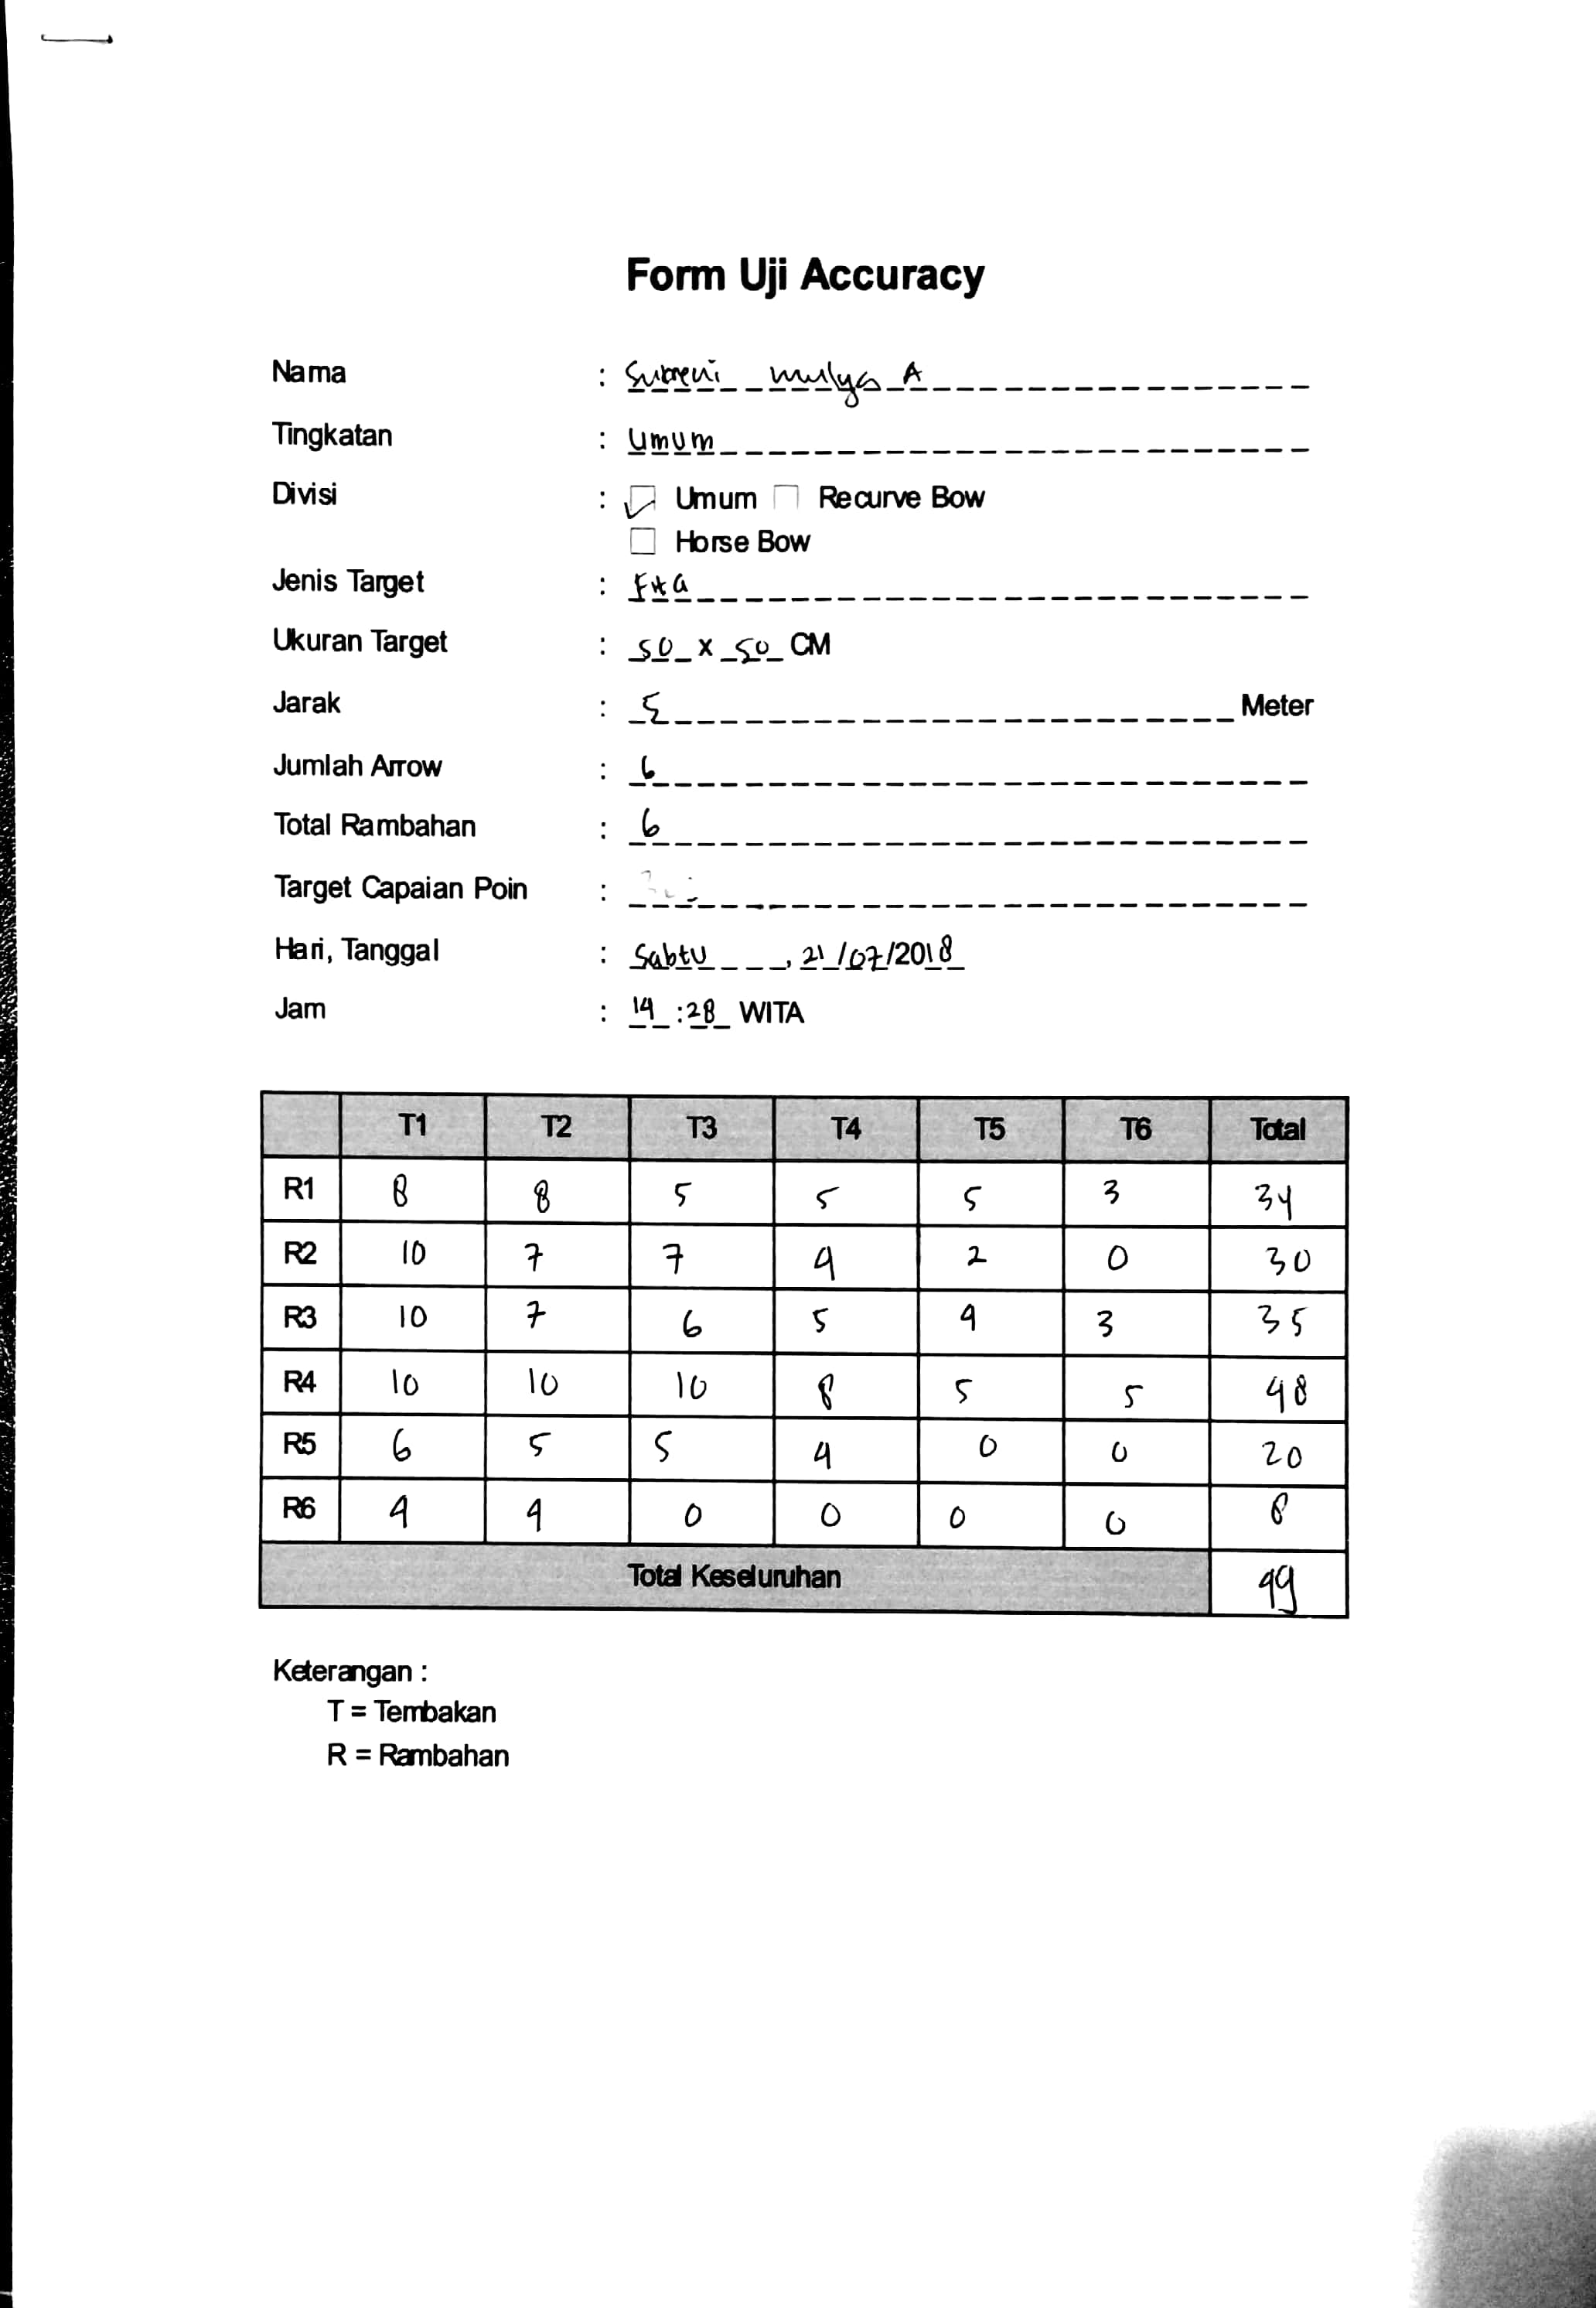 Form Uji Accuracy
Nama : mulya A
Tingkatan : Umum
Divisi : Umum Recurve Bow
Horse Bow
Jenis Target : FITA
Ukuran Target : 50 x 50 CM
Jarak : 5 Meter
Jumlah Arrow : 6
Total Rambahan : 6
Target Capaian Poin :
Hari, Tanggal : Sabtu, 21/07/2018
Jam : 14:28 WITA
T1 T2 T3 T4 T5 T6 Total
R1 8 8 5 5 5 3 34
R2 10 7 7 4 2 0 30
R3 10 7 6 5 4 3 35
R4 10 10 10 8 5 5 48
R5 6 5 5 4 0 0 20
R6 4 4 0 0 0 0 8
Total Keseluruhan 99
Keterangan :
T = Tembakan
R = Rambahan